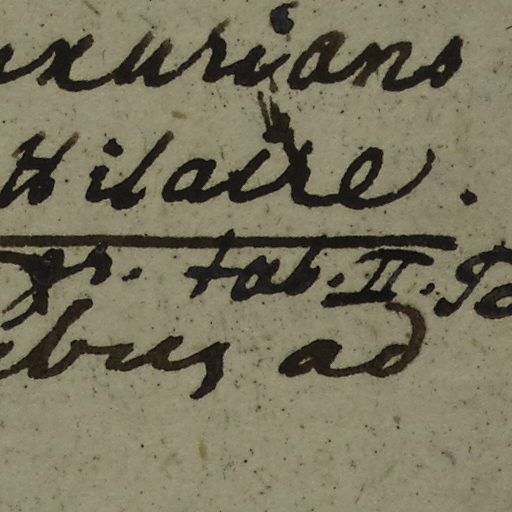 uxurians
Hilaire.
gr. tab. II. Pa
ebus ad